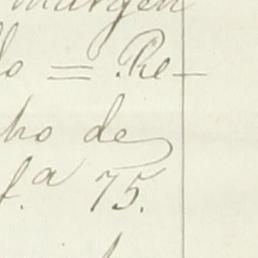 margen
do = Re-
cho de
f.ª 75.